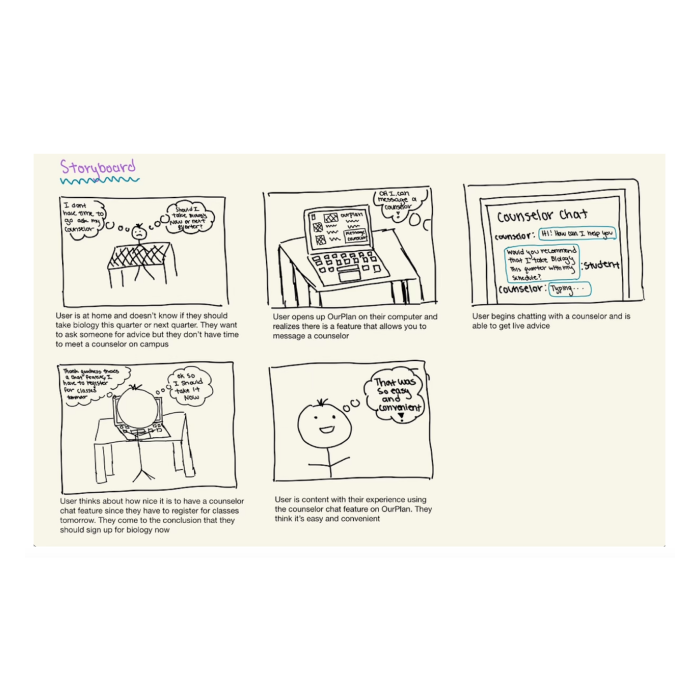 Storyboard
I dont
have time to
go ask my
counselor
Should I
take Biology
now or next
quarter?
User is at home and doesn't know if they should
take biology this quarter or next quarter. They want
to ask someone for advice but they don't have time
to meet a counselor on campus
ourplan
message
counselor
OH I can
message a
counselor
!
User opens up OurPlan on their computer and
realizes there is a feature that allows you to
message a counselor
Counselor Chat
counselor: Hi! How can I help you
Would you recommend
that I take Biology
This quarter with my
schedule?
:Student
Counselor: Typing...
User begins chatting with a counselor and is
able to get live advice
Thank goodness theres
a chat feature, I
have to register
for classes
tomorrow
oh so
I should
take it
Now
User thinks about how nice it is to have a counselor
chat feature since they have to register for classes
tomorrow. They come to the conclusion that they
should sign up for biology now
That was
so easy
and
convenient
!
User is content with their experience using
the counselor chat feature on OurPlan. They
think it's easy and convenient